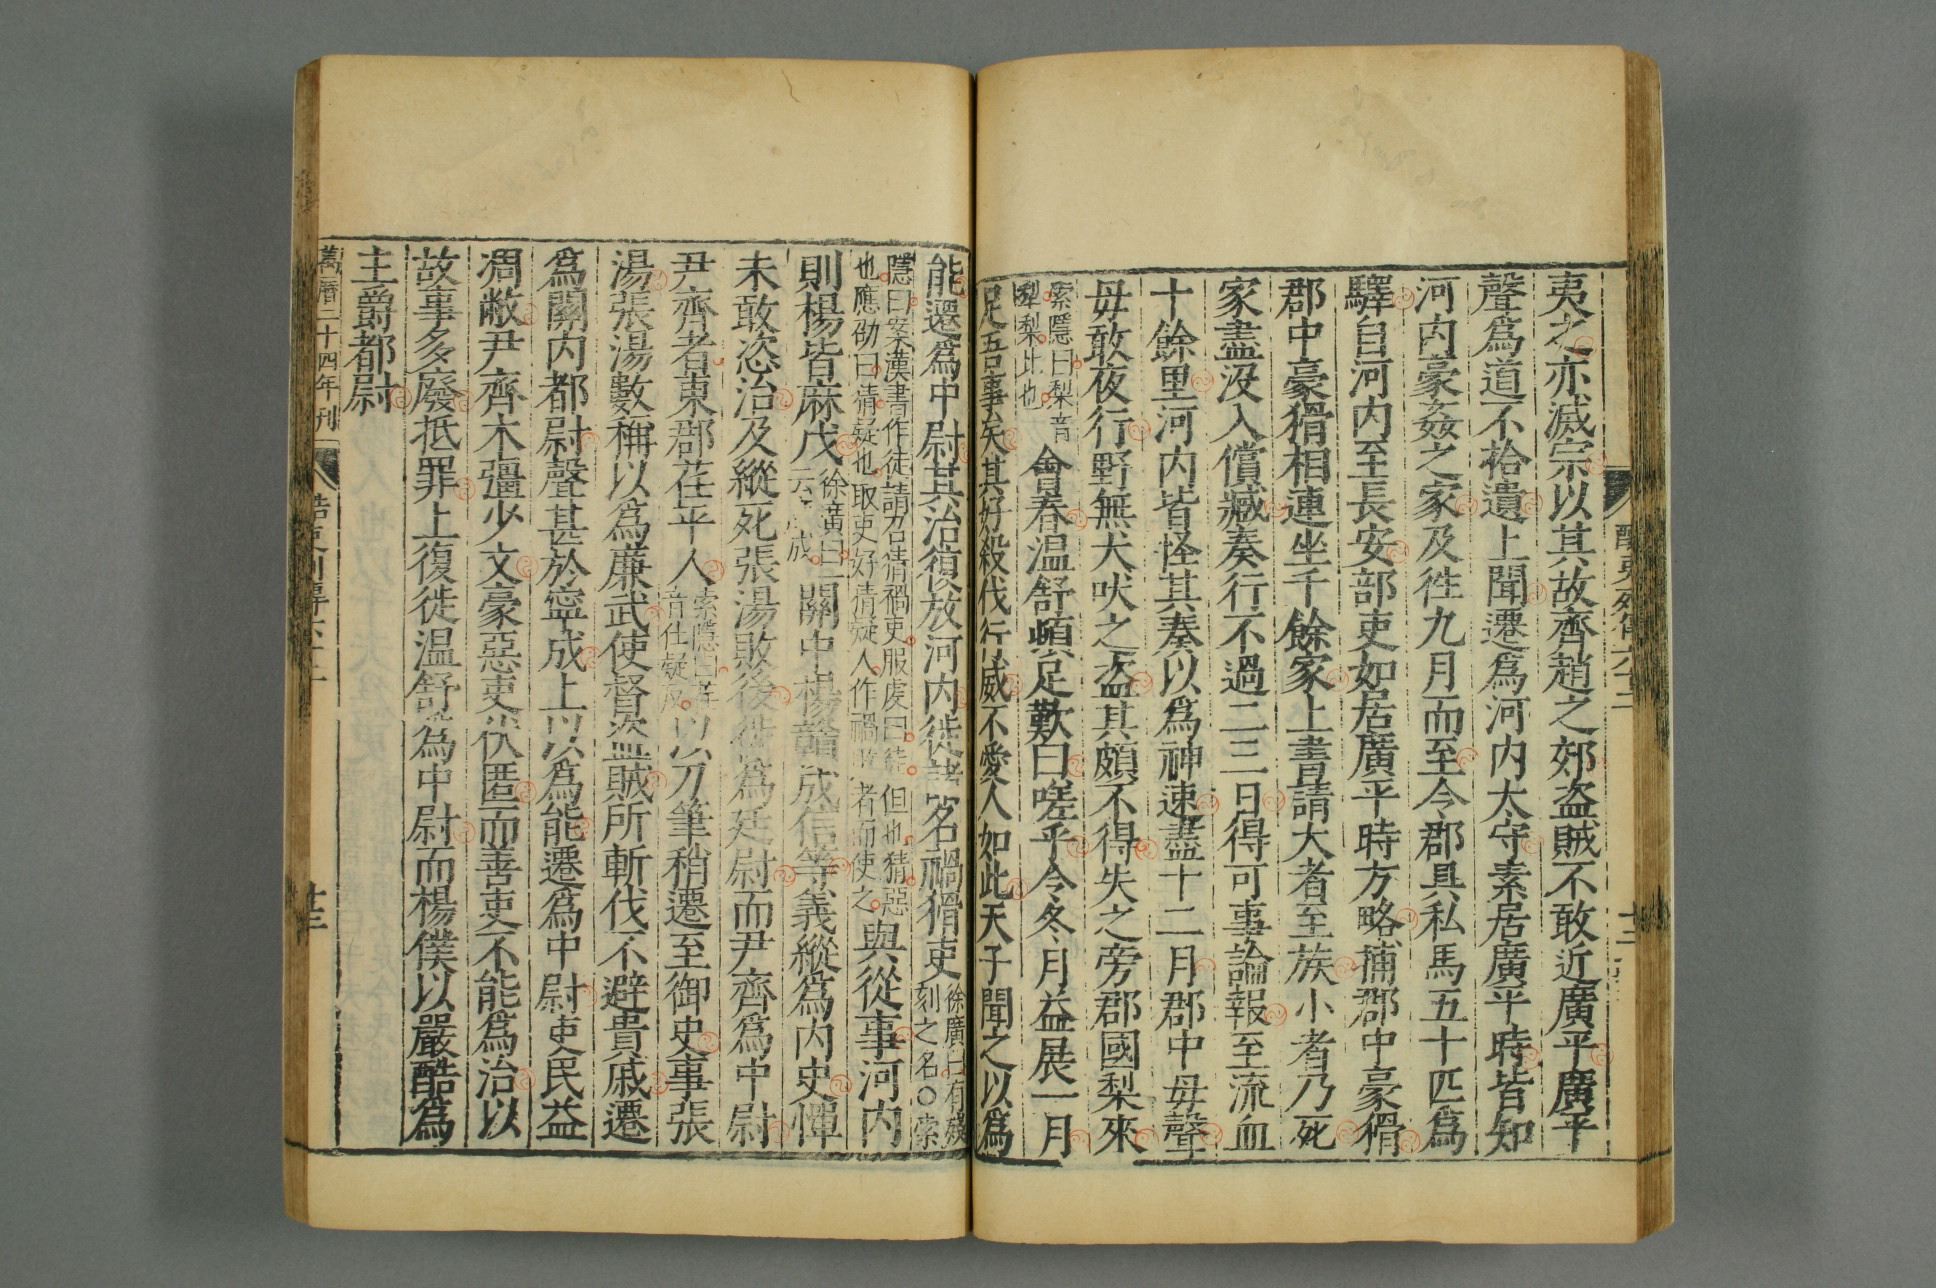 夷之亦滅宗以其故齊趙之郊盗賊不敢近廣平廣平
聲爲道不拾遺上聞遷爲河内太守素居廣平時皆知
河内豪姦之家及徃九月而至令郡具私馬五十匹爲
驛自河内至長安部吏如居廣平時方略捕郡中豪猾
郡中豪猾相連坐千餘家上書請大者至族小者乃死
家盡没入償臧奏行不過二三日得可事論報至流血
十餘里河内皆怪其奏以爲神速盡十二月郡中毋聲
毋敢夜行野無犬吠之盗其頗不得失之旁郡國梨來
索隱曰梨音
犁梨比也
會春温舒頓足歎曰嗟乎令冬月益展一月
足吾事矣其好殺伐行威不愛人如此天子聞之以爲
能遷爲中尉其治復放河内徙諸名禍猾吏
徐廣曰有殘
刻之名○索
隱曰案漢書作徒請召猜禍吏服虔曰徒但也猜惡
也應劭曰猜疑也取吏好猜疑人作禍敗者而使之
與從事河内
則楊皆麻戊
徐廣曰一
云成
關中楊贛成信等義縱爲内史憚
未敢恣治及縱死張湯敗後徙爲廷尉而尹齊爲中尉
尹齊者東郡茌平人
索隱曰茌
音仕疑反
以刀筆稍遷至御史事張
湯張湯數稱以爲廉武使督盗賊所斬伐不避貴戚遷
爲關内都尉聲甚於寧成上以爲能遷爲中尉吏民益
凋敝尹齊木彊少文豪惡吏伏匿而善吏不能爲治以
故事多廢抵罪上復徙温舒爲中尉而楊僕以嚴酷爲
主爵都尉
萬曆二十四年刊